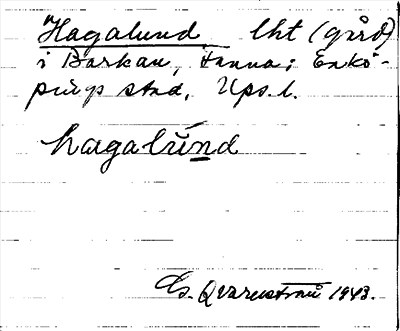 Hagalund lht (gård)
i Barkan, Fanna; Enkö-
pings stad, Upps. l.
hagalund
G. Qvarnström 1943.